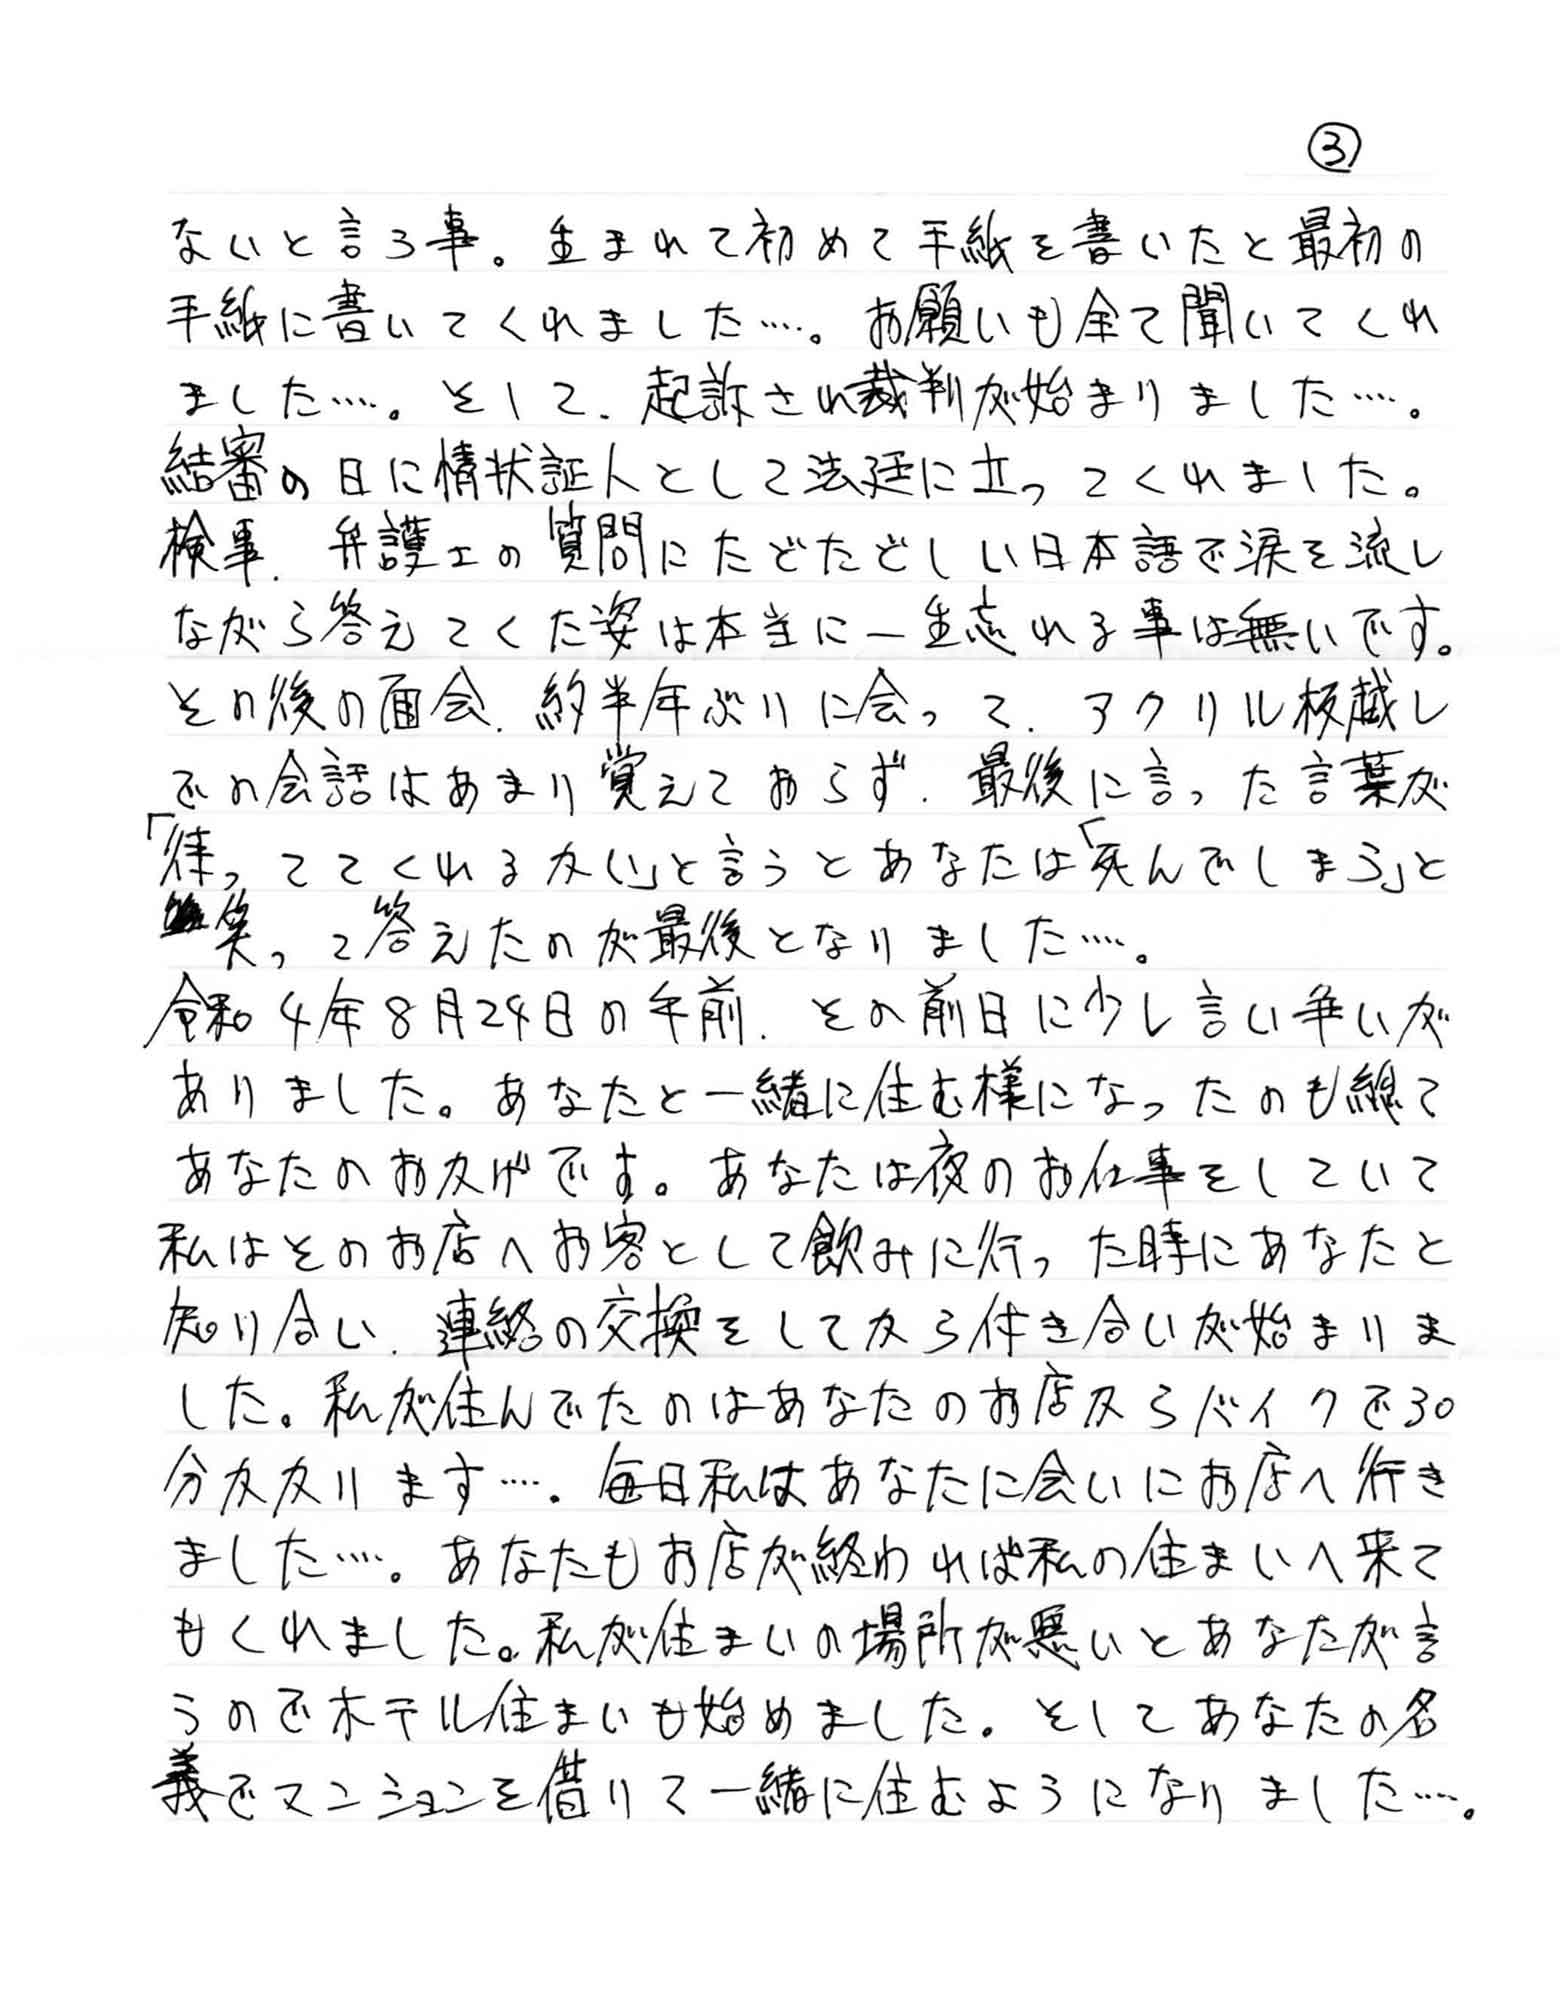 ③
ないと言う事。生まれて初めて手紙を書いたと最初の
手紙に書いてくれました….。お願いも全て聞いてくれ
ました….。そして、起訴され裁判が始まりました….。
結審の日に情状証人として法廷に立ってくれました。
検事、弁護士の質問にたどたどしい日本語で涙を流し
ながら答えてくた姿は本当に一生忘れる事は無いです。
その後の面会、約半年ぶりに会って、アクリル板越し
での会話はあまり覚えておらず、最後に言った言葉が
「待っててくれるかい」と言うとあなたは「死んでしまう」と
笑って答えたのが最後となりました….。
令和4年8月24日の午前、その前日に少し言い争いが
ありました。あなたと一緒に住む様になったのも總て
あなたのおかげです。あなたは夜のお仕事をしていて
私はそのお店へお客として飲みに行った時にあなたと
知り合い、連絡の交換をしてから付き合いが始まりま
した。私が住んでたのはあなたのお店からバイクで30
分かかります….。毎日私はあなたに会いにお店へ行き
ました….。あなたもお店が終われば私の住まいへ来て
もくれました。私が住まいの場所が悪いとあなたが言
うのでホテル住まいも始めました。そしてあなたの名
義でマンションを借りて一緒に住むようになりました….。